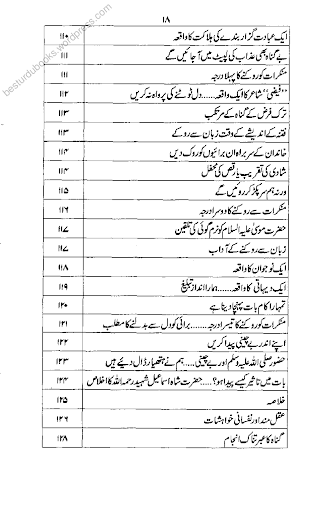 ۱۸
ایک عبادت گزار بندے کی ہلاکت کا واقعہ ۱۱۰
بے گناہ بھی عذاب کی لپیٹ میں آجائیں گے ۱۱۱
منکرات کو روکنے کا پہلا درجہ ۱۱۱
”فیضی“ شاعر کا ایک واقعہ......دل ٹوٹنے کی پرواہ نہ کریں ۱۱۲
ترک فرض کے گناہ کے مرتکب ۱۱۳
فتنہ کے اندیشے کے وقت زبان سے روکے ۱۱۳
خاندان کے سربراہ ان برائیوں کو روک دیں ۱۱۴
شادی کی تقریب یا رقص کی محفل ۱۱۴
ورنہ ہم سر پکڑ کر روئیں گے ۱۱۵
منکرات سے روکنے کا دوسرا درجہ ۱۱۶
حضرت موسیٰ علیہ السلام کو نرم گوئی کی تلقین ۱۱۷
زبان سے روکنے کے آداب ۱۱۷
ایک نوجوان کا واقعہ ۱۱۸
ایک دیہاتی کا واقعہ......ہمارا انداز تبلیغ ۱۱۹
تمہارا کام بات پہنچا دینا ہے ۱۲۰
منکرات کو روکنے کا تیسرا درجہ......برائی کو دل سے بدلنے کا مطلب ۱۲۱
اپنے اندر بے چینی پیدا کریں ۱۲۲
حضور صلی اللہ علیہ وسلم اور بے چینی....ہم نے ہتھیار ڈال دیے ہیں ۱۲۳
بات میں تاثیر کیسے پیدا ہو؟....حضرت شاہ اسماعیل شہید رحمہ اللہ کا اخلاص ۱۲۴
خلاصہ ۱۲۵
عقل مند اور نفسانی خواہشات ۱۲۶
گناہ کا عبرتناک انجام ۱۲۸
besturdubooks.wordpress.com